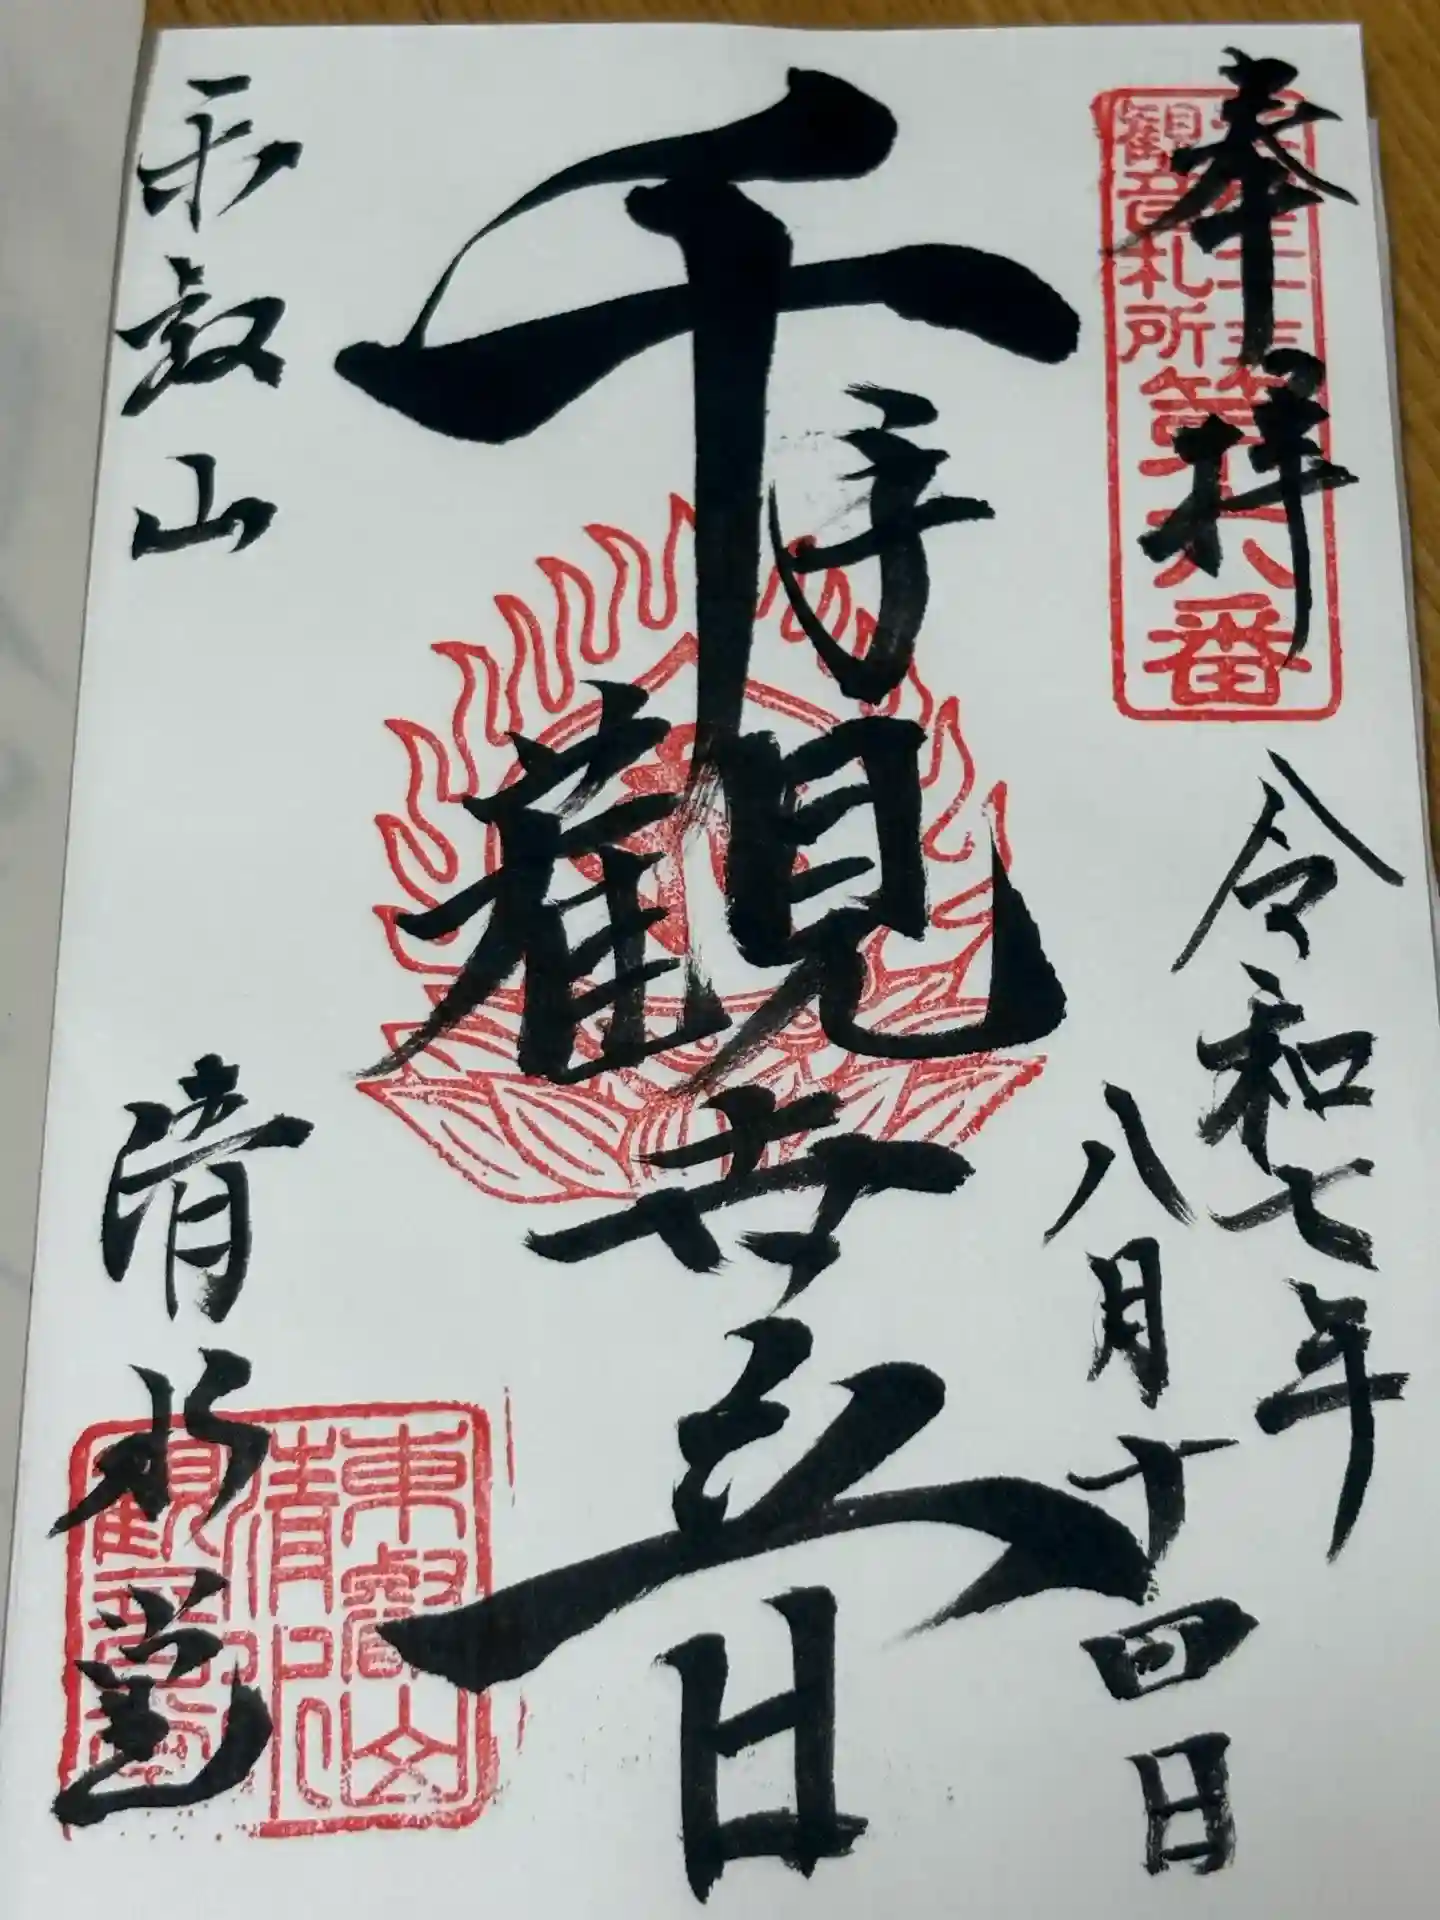 奉拝
令和七年
八月十四日
千手観世音
東叡山
清水堂
観音札所
第六番
東叡山
清水
観音堂